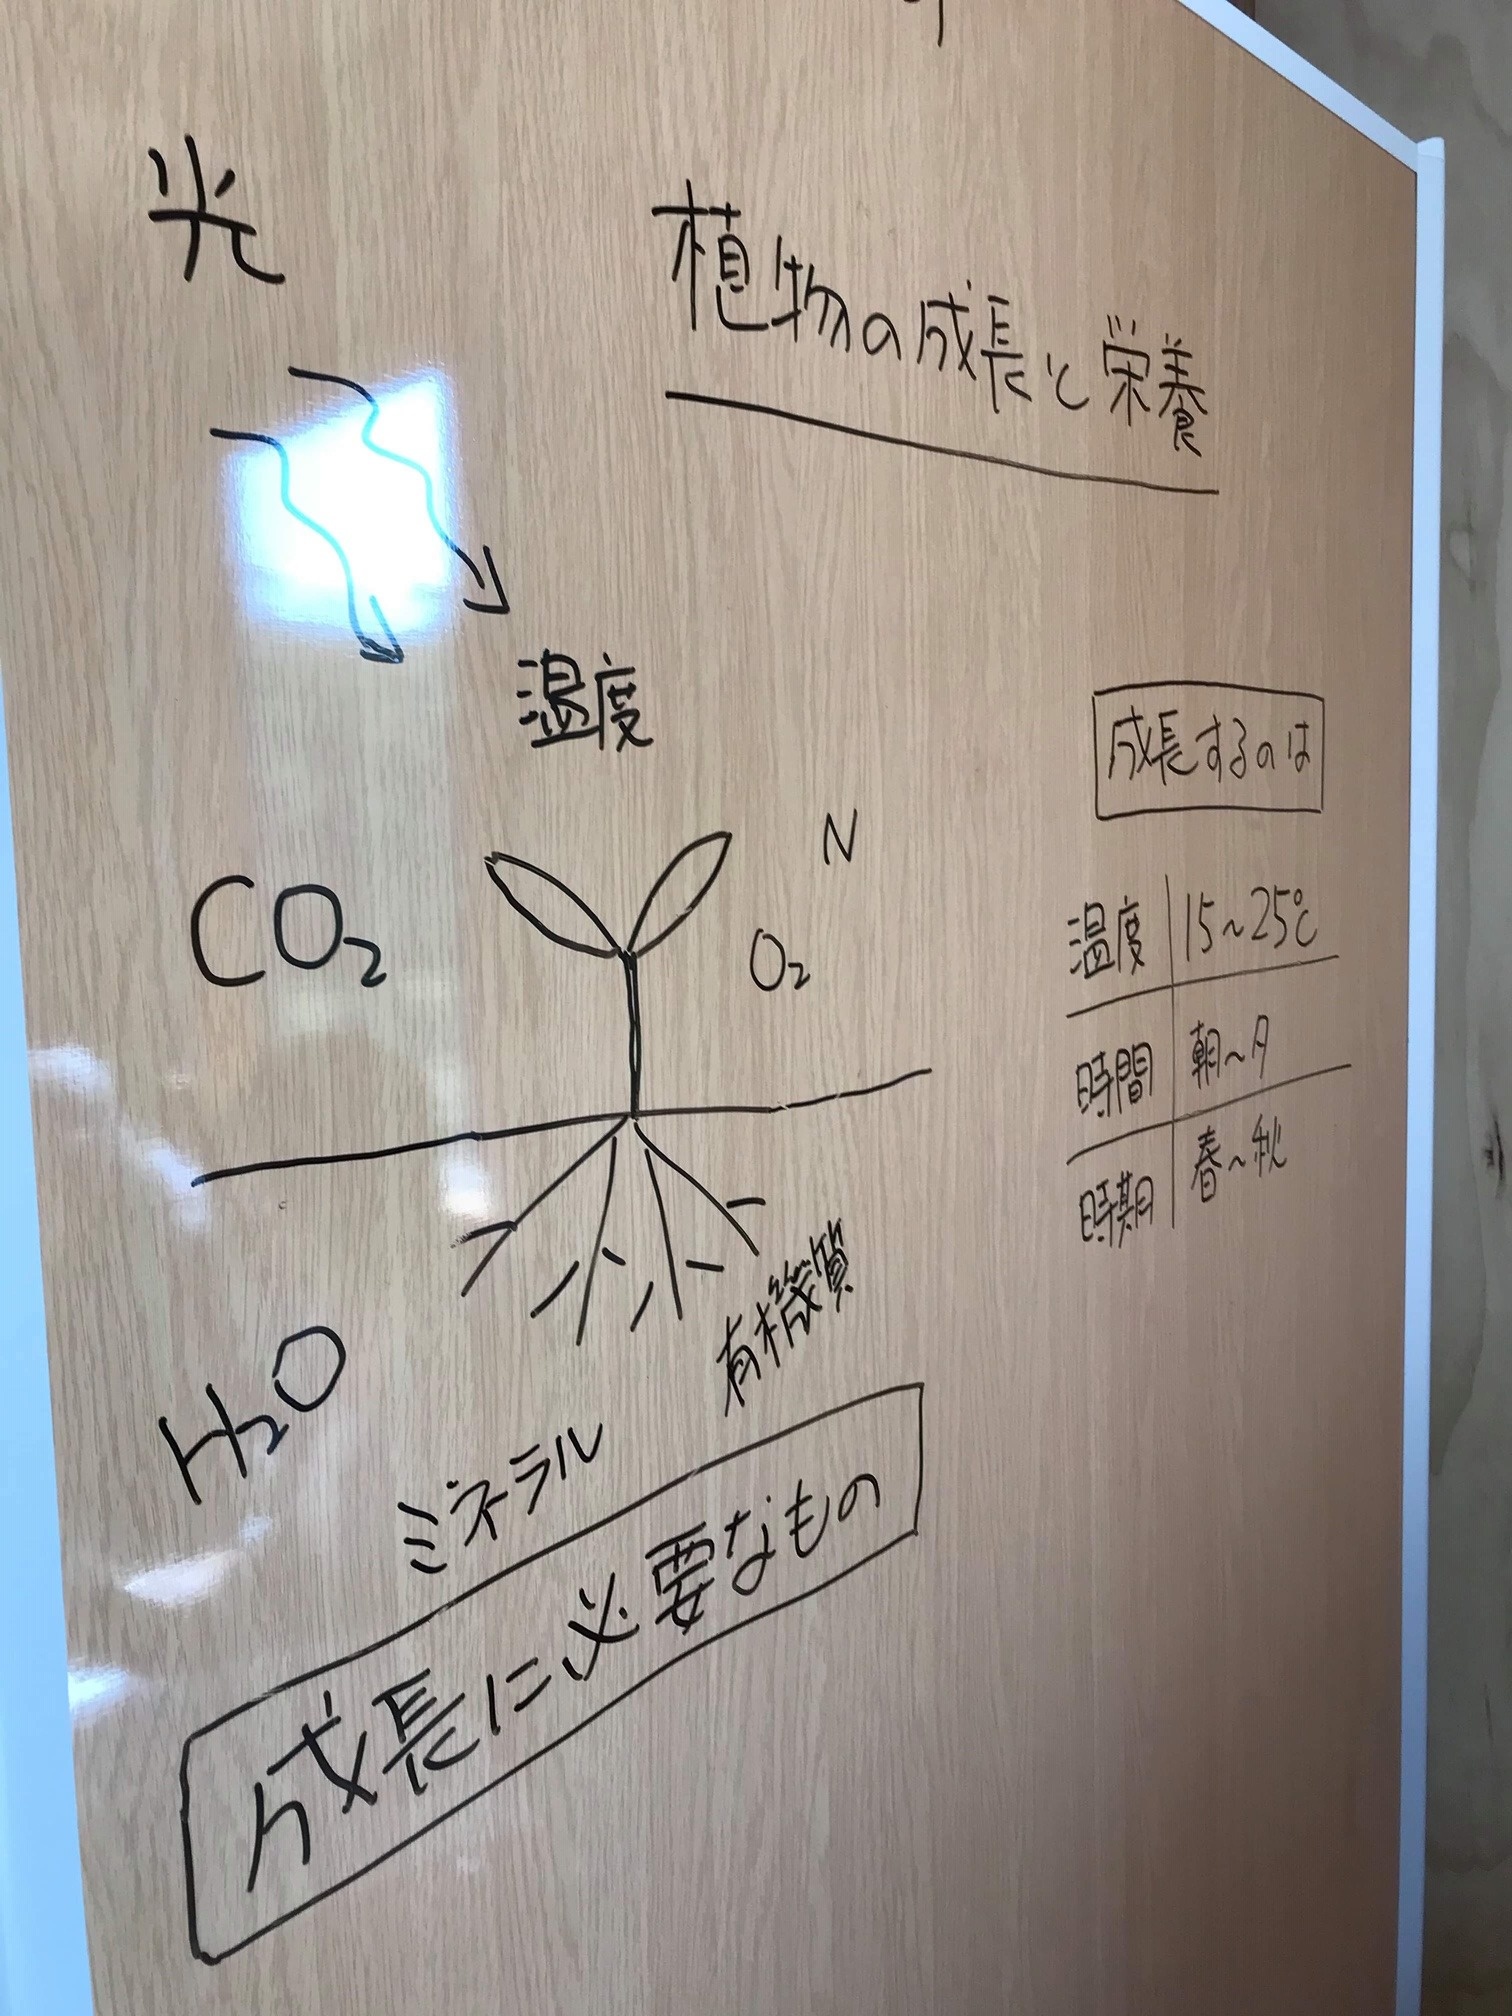 光
植物の成長と栄養
温度
成長するのは
N
CO2
O2
温度 15~25℃
時間 朝~夕
時期 春~秋
有機質
H2O
ミネラル
成長に必要なもの